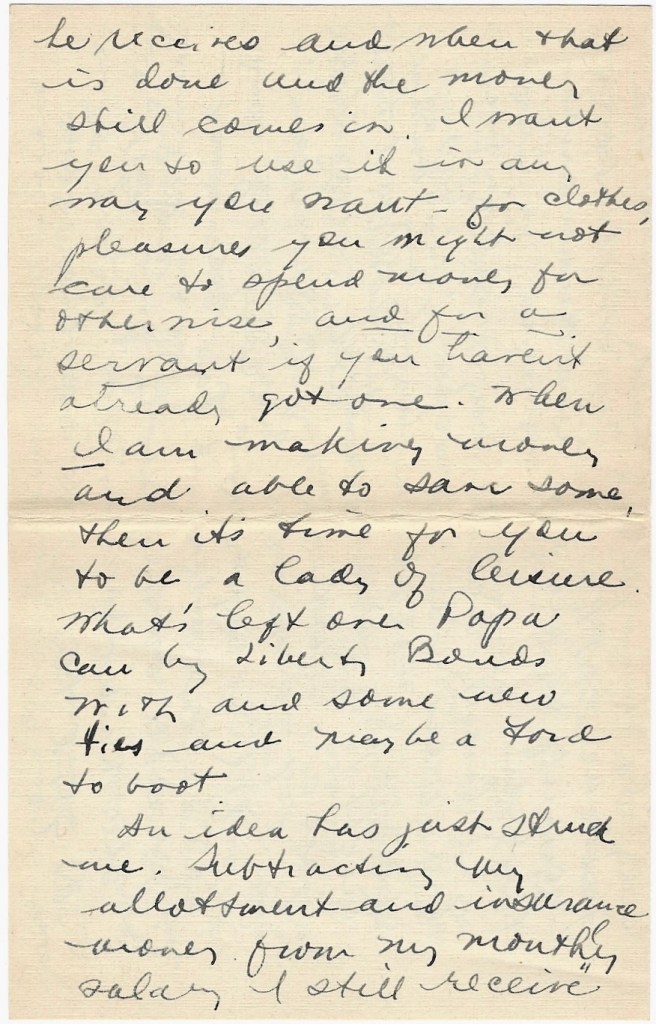 he receives and when that
is done and the money
still comes in. I want
you to use it in any
way you want - for clothes,
pleasures you might not
care to spend money for
otherwise, and for a
servant if you haven't
already got one. When
I am making money
and able to save some,
then its time for you
to be a lady of leisure.
What's left over Papa
can by Liberty Bonds
with and some new
ties and maybe a Ford
to boot
An idea has just struck
me. Subtracting my
allottment and insurance
money from my monthly
salary I still receive